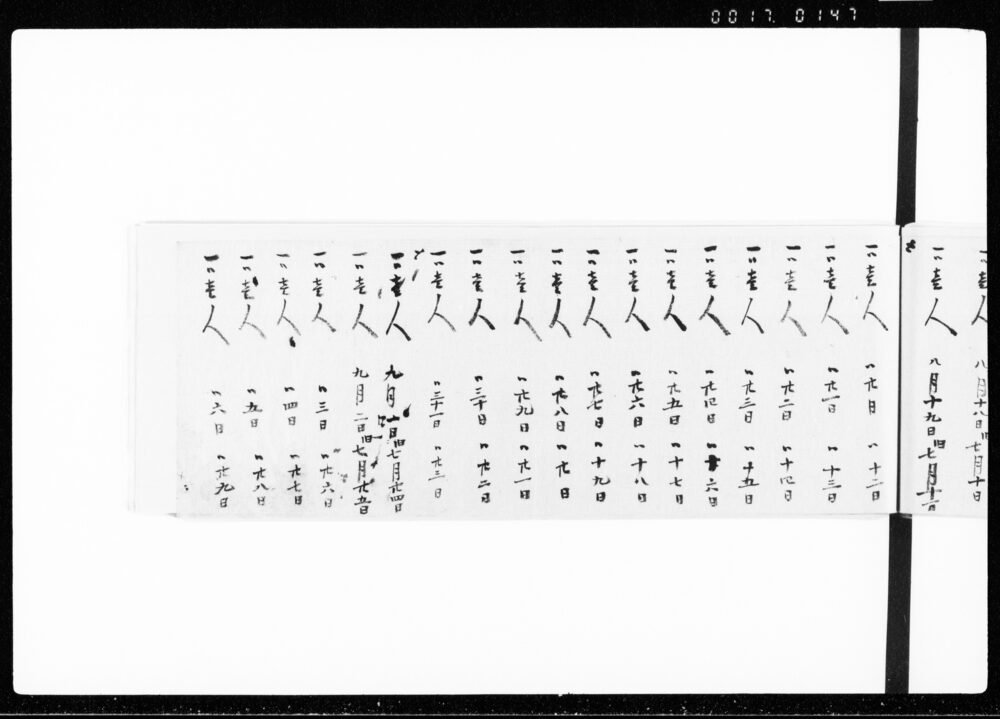 0017 0147
一〃壱人 八月十八日旧七月十日
一〃壱人 八月十九日旧七月十一日
一〃壱人 〃廿日 〃十二日
一〃壱人 〃廿一日 〃十三日
一〃壱人 〃廿二日 〃十四日
一〃壱人 〃廿三日 〃十五日
一〃壱人 〃廿四日 〃十六日
一〃壱人 〃廿五日 〃十七日
一〃壱人 〃廿六日 〃十八日
一〃壱人 〃廿七日 〃十九日
一〃壱人 〃廿八日 〃廿日
一〃壱人 〃廿九日 〃廿一日
一〃壱人 〃三十日 〃廿二日
一〃壱人 〃三十一日 〃廿三日
一〃壱人 九月一日旧七月廿四日
一〃壱人 九月二日旧七月廿五日
一〃壱人 〃三日 〃廿六日
一〃壱人 〃四日 〃廿七日
一〃壱人 〃五日 〃廿八日
一〃壱人 〃六日 〃廿九日